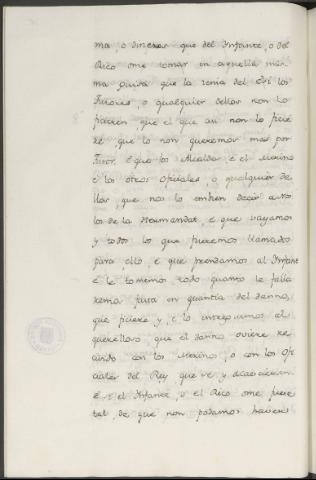 ma, o dineros que del Infante, o del
Rico ome tomar in aquella mis
ma guisa que la tenia del Rei los
Tutores, o qualquier dellos non lo
ficieren, que el que asi non lo ficie
re que lo non queremos mas por
Tutor. E que los Alcaldes, e el Merino
e los otros oficiales, o qualquier de
llos, que nos lo embien decir a to
los de la Hermandat, e que vayamos
y todos los que fueremos llamados
para ello e que prendamos al Infant
e le tomemos todo quanto le falla
remos fasta en quantia del danno,
que ficiere y, e lo entreguemos al
querelloso que el danno oviere re
civido con los Merinos, o con los ofi
ciales del Rey que se y acaescieren
E si el Infante, o el Rico ome fuere
tal, de que non podamos haver